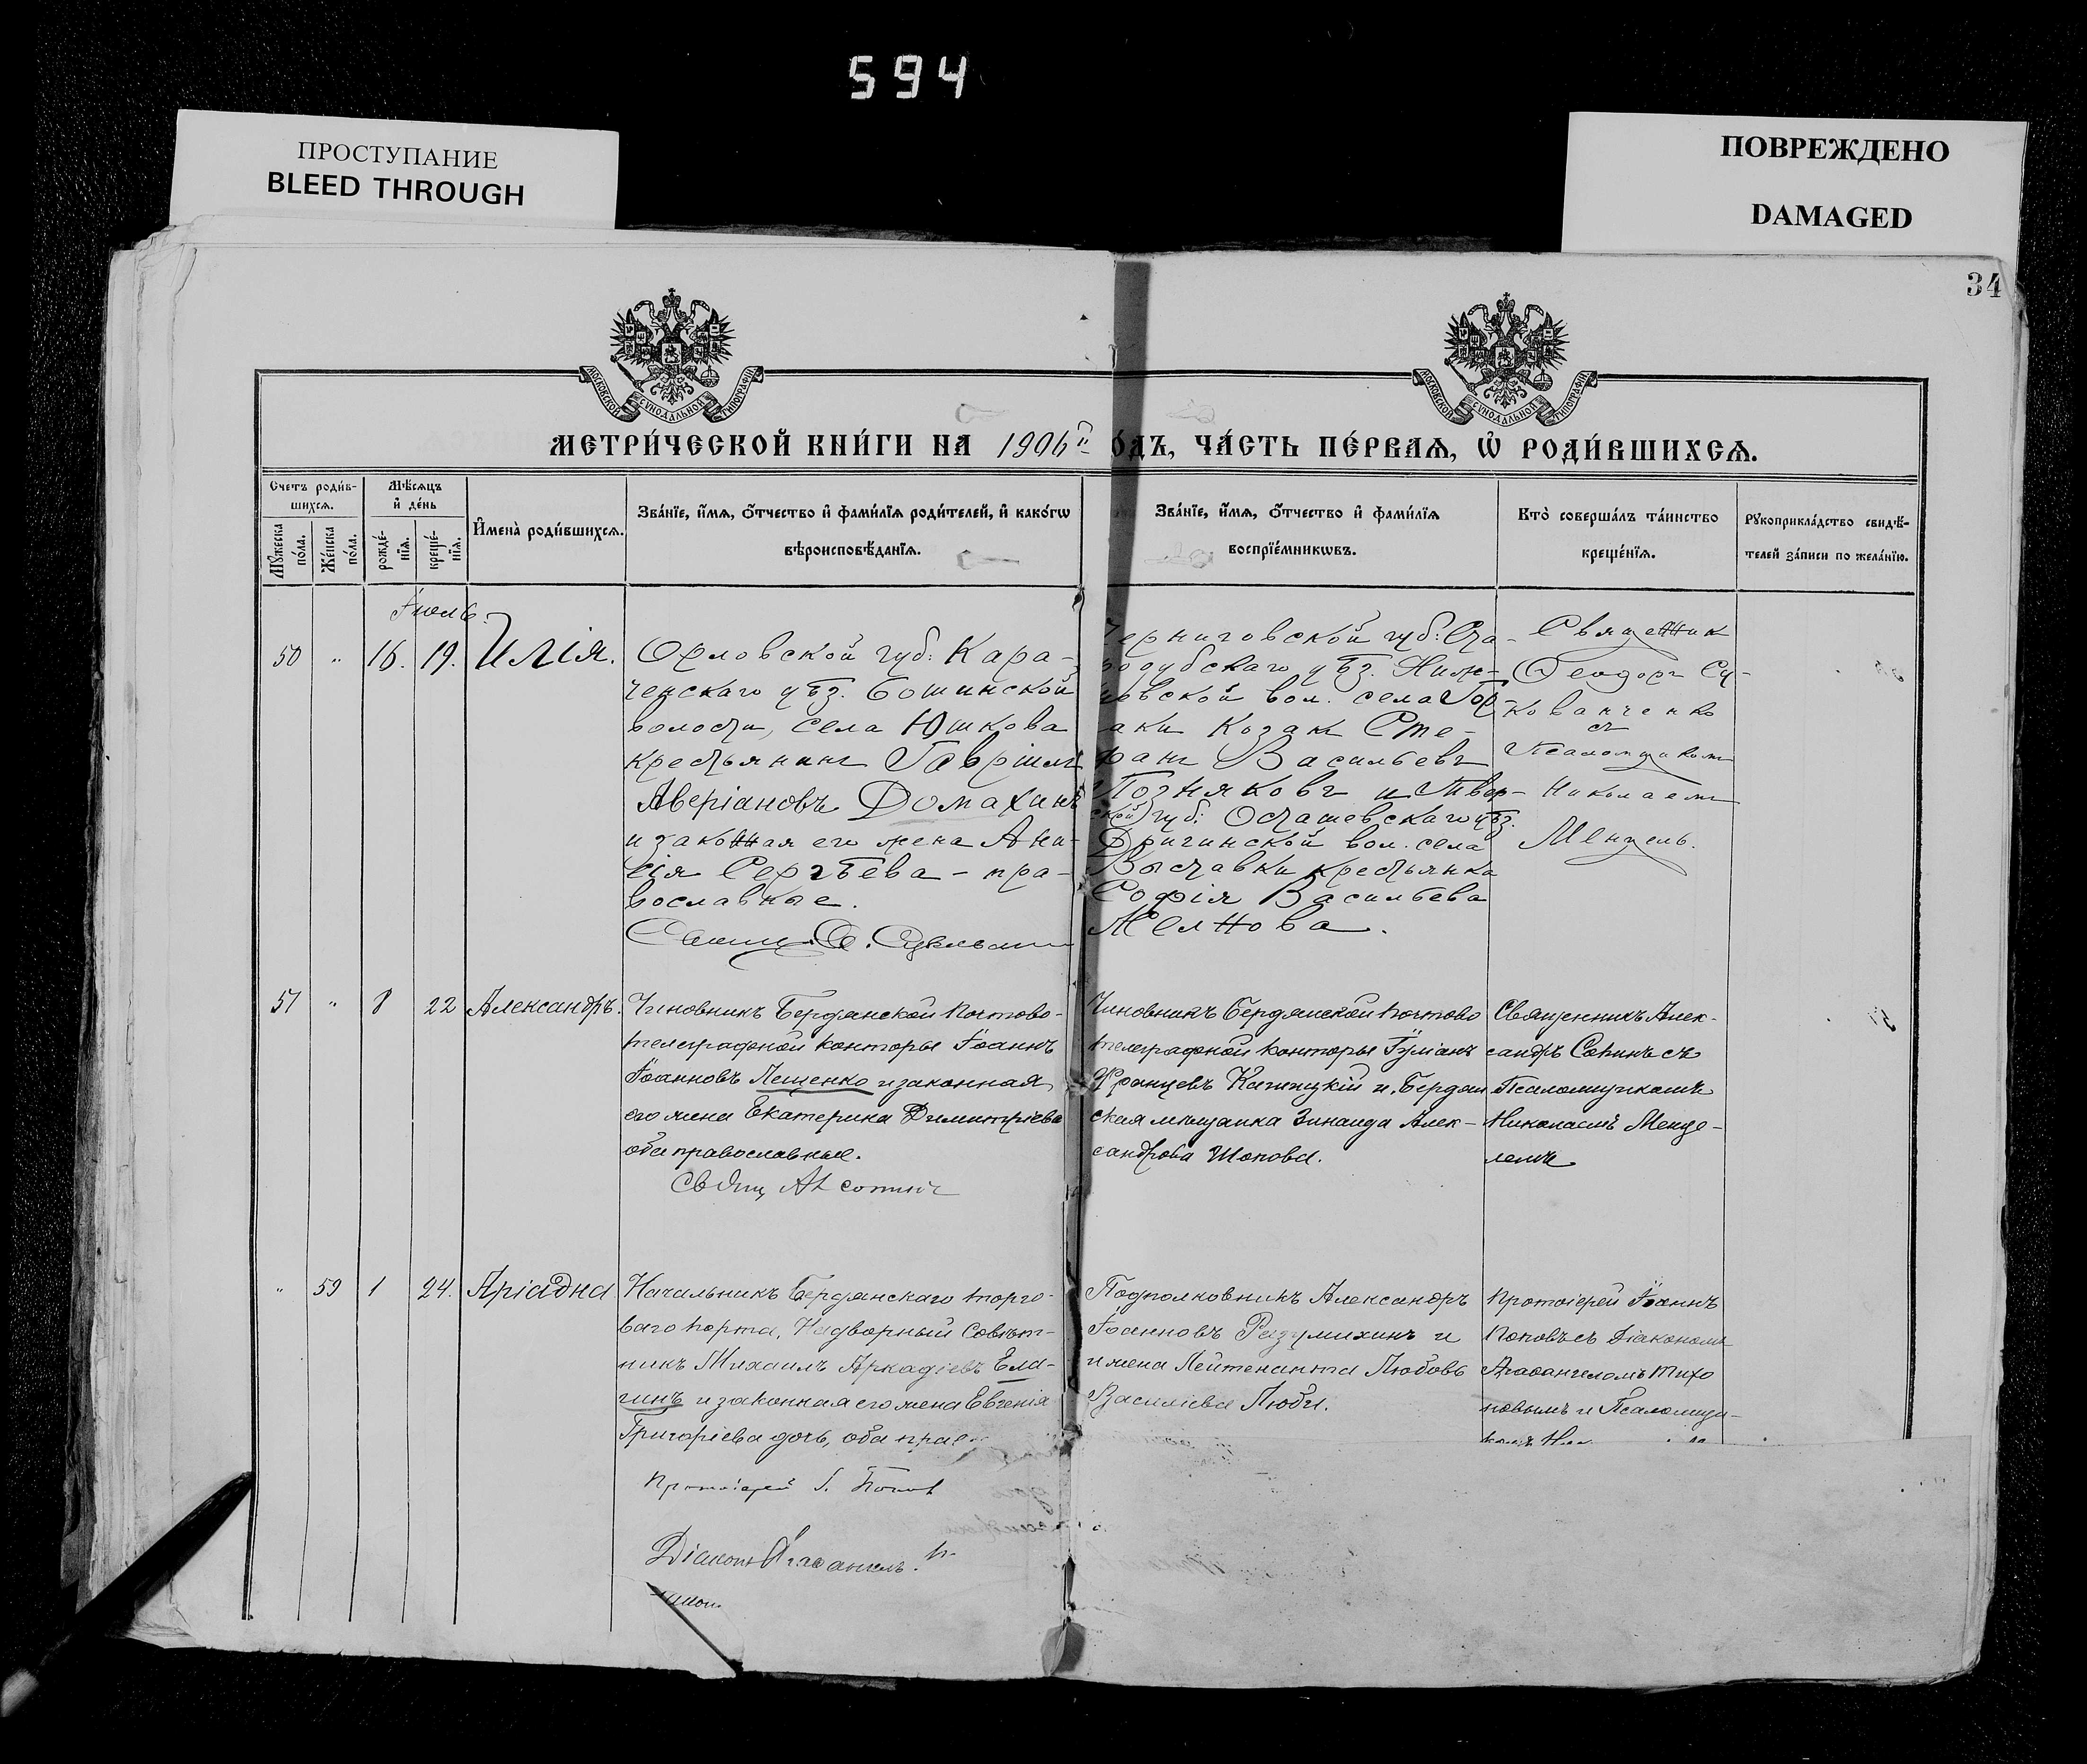 594
ПРОСТУПАНИЕ
BLEED THROUGH
ПОВРЕЖДЕНО
DAMAGED
34
МОСКОВСКОЙ СУНОДАЛЬНОЙ ТИПОГРАФІИ
МОСКОВСКОЙ СУНОДАЛЬНОЙ ТИПОГРАФІИ
МЕТРИ́ЧЕСКОЙ КНИ́ГИ НА 1906й ОДЪ, ЧА́СТЬ ПЕ́РВАѦ, Ѽ РОДИ́ВШИХСѦ.
Счетъ роди́в-
шихсѧ.
Мꙋжеска по́ла.
Же́нска по́ла.
Мѣ́сѧцъ
и҆ де́нь
рожде́-
нїѧ.
креще́-
нїѧ.
И҆мена̀ роди́вшихсѧ.
Зва́нїе, и҆́мѧ, о҆́тчество и҆ фами́лїѧ роди́телей, и҆ како́гѡ
вѣроисповѣ́данїѧ.
Зва́нїе, и҆́мѧ, о҆́тчество и҆ фами́лїѧ
воспрїе́мникѡвъ.
Кто̀ соверша́лъ та́инство
креще́нїѧ.
Рꙋкоприкла́дство свидѣ́-
телей за́писи по жела́нїю.
Іюль.
50 " 16. 19. Илія.
Орловской губ: Кара-
чевскаго уѣз. Бошинской
волости, села Юшкова
крестьянинъ Гавріилъ
Аверіановъ Домахинъ
и законная его жена Ани-
сія Сергѣева - пра-
вославные.
Черниговской губ: Ста-
родубскаго уѣз.
вол. села
аки Козак Сте-
фанъ Васильевъ
Позняковъ и Твер-
ской губ: Осташевскаго уѣз.
вол. села
Выставки крестьянка
Софія Васильева
Священник
Ѳеодоръ Су-
кованченко
съ
Псаломщикомъ
Николаемъ
Мендель.
51 " 8 22 Александръ.
Чиновникъ Бердянской почтово-
телеграфной конторы Іоаннъ
Іоанновъ Лещенко и законная
его жена Екатерина Димитріева
оба православные.
Свящ
Чиновникъ Бердянской почтово
телеграфной конторы Іуліанъ
Францевъ и Бердян
ская мѣщанка Зинаида Алек-
сандрова Шопова.
Священникъ Алек-
сандръ Сотинъ съ
Псаломщикомъ
Николаемъ Менде-
лемъ
" 59 1 24. Аріадна
Начальникъ Бердянскаго торго-
ваго порта, Надворный Совѣт-
никъ Михаилъ Аркадіевъ Ела-
гинъ и законная его жена Евгенія
Григоріева дочь, оба прав
Протоіерей І. Поповъ
Діаконъ Агаѳангелъ
Подполковникъ Александръ
Іоанновъ Разумихинъ и
и жена Лейтенанта Любовь
Василіева Люби.
Протоіерей Іоаннъ
Поповъ съ Діакономъ
Агаѳангеломъ Тихо
новымъ и Псаломщи-
комъ